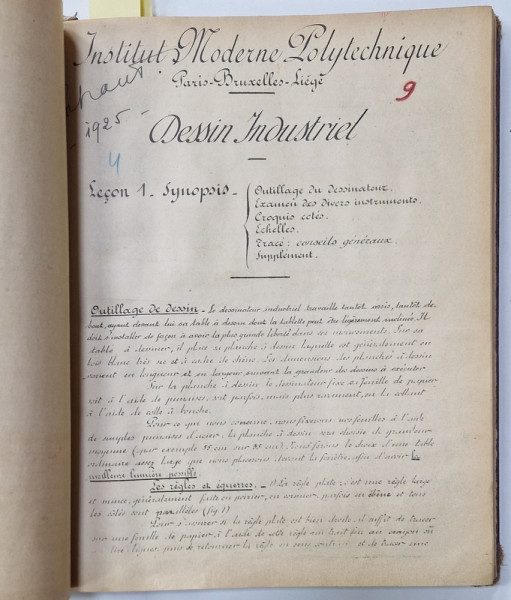 Institut Moderne Polytechnique
Paris-Bruxelles-Liége
1925 -
9
Dessin Industriel
4
Leçon 1 - Synopsis -
Outillage du dessinateur.
Examen des divers instruments.
Croquis cotés.
Echelles.
Tracé : conseils généraux.
Supplément.
Outillage de dessin - Le dessinateur industriel travaille tantôt assis, tantôt de-
bout, ayant devant lui sa table à dessin dont la tablette peut être légèrement inclinée. Il
doit s'installer de façon à avoir la plus grande liberté dans ses mouvements. Sur sa
table à dessiner, il place sa planche à dessin laquelle est généralement en
bois blanc très sec et à cadre de chêne. Les dimensions des planches à dessin
varient en longueur et en largeur suivant la grandeur des dessins à exécuter
Sur la planche à dessin le dessinateur fixe sa feuille de papier
soit à l'aide de punaises, soit parfois, mais plus rarement, en la collant
à l'aide de colle à bouche.
Pour ce qui nous concerne, nous fixerons nos feuilles à l'aide
de simples punaises d'acier; la planche à dessin sera choisie de grandeur
moyenne (par exemple 55 cm sur 35 cm). Nous ferons le choix d'une table
ordinaire assez large que nous placerons devant la fenêtre, afin d'avoir la
meilleure lumière possible.
Les règles et équerres. - 1) La règle plate, c'est une règle large
et mince, généralement faite en poirier, en cormier, parfois en ébène et dont
les côtés sont parallèles (fig. 1)
Pour s'assurer si la règle plate est bien droite, il suffit de tracer
sur une feuille de papier à l'aide de cette règle un trait fin au crayon ou
à l'encre, puis de retourner la règle en sens contraire et de tracer une